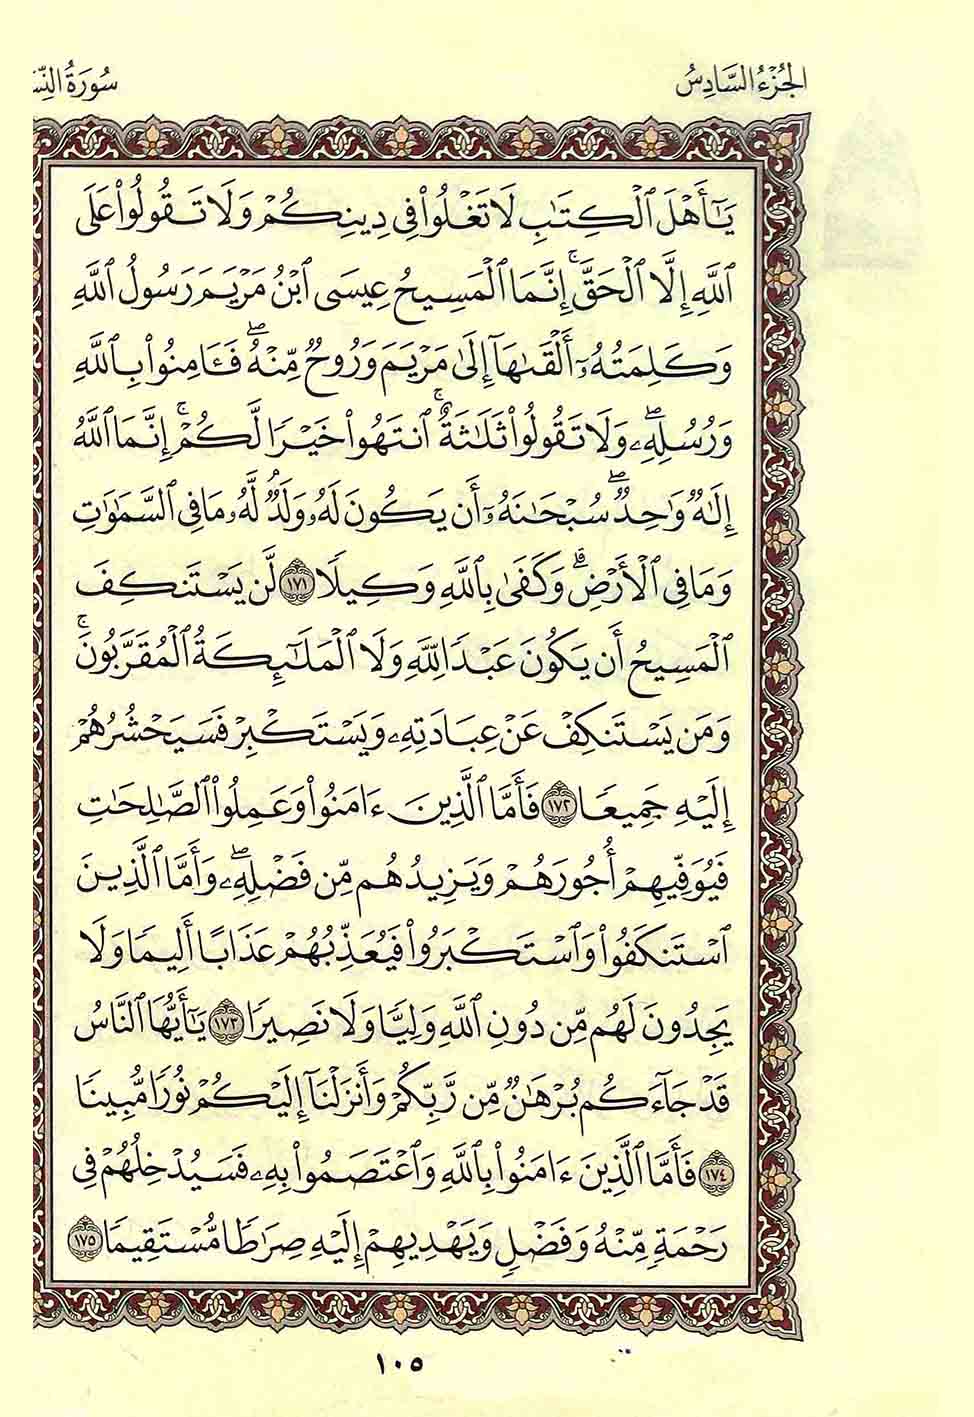 الجُزْءُ السَّادِسُ
سُورَةُ النِّسَ
يَٰٓأَهۡلَ ٱلۡكِتَٰبِ لَا تَغۡلُواْ فِي دِينِكُمۡ وَلَا تَقُولُواْ عَلَى
ٱللَّهِ إِلَّا ٱلۡحَقَّۚ إِنَّمَا ٱلۡمَسِيحُ عِيسَى ٱبۡنُ مَرۡيَمَ رَسُولُ ٱللَّهِ
وَكَلِمَتُهُۥٓ أَلۡقَىٰهَآ إِلَىٰ مَرۡيَمَ وَرُوحٞ مِّنۡهُۖ فَـَٔامِنُواْ بِٱللَّهِ
وَرُسُلِهِۦۖ وَلَا تَقُولُواْ ثَلَٰثَةٌۚ ٱنتَهُواْ خَيۡرٗا لَّكُمۡۚ إِنَّمَا ٱللَّهُ
إِلَٰهٞ وَٰحِدٞۖ سُبۡحَٰنَهُۥٓ أَن يَكُونَ لَهُۥ وَلَدٞۘ لَّهُۥ مَا فِي ٱلسَّمَٰوَٰتِ
وَمَا فِي ٱلۡأَرۡضِۗ وَكَفَىٰ بِٱللَّهِ وَكِيلٗا ١٧١ لَّن يَسۡتَنكِفَ
ٱلۡمَسِيحُ أَن يَكُونَ عَبۡدٗا لِّلَّهِ وَلَا ٱلۡمَلَٰٓئِكَةُ ٱلۡمُقَرَّبُونَۚ
وَمَن يَسۡتَنكِفۡ عَنۡ عِبَادَتِهِۦ وَيَسۡتَكۡبِرۡ فَسَيَحۡشُرُهُمۡ
إِلَيۡهِ جَمِيعٗا ١٧٢ فَأَمَّا ٱلَّذِينَ ءَامَنُواْ وَعَمِلُواْ ٱلصَّٰلِحَٰتِ
فَيُوَفِّيهِمۡ أُجُورَهُمۡ وَيَزِيدُهُم مِّن فَضۡلِهِۦۖ وَأَمَّا ٱلَّذِينَ
ٱسۡتَنكَفُواْ وَٱسۡتَكۡبَرُواْ فَيُعَذِّبُهُمۡ عَذَابًا أَلِيمٗا وَلَا
يَجِدُونَ لَهُم مِّن دُونِ ٱللَّهِ وَلِيّٗا وَلَا نَصِيرٗا ١٧٣ يَٰٓأَيُّهَا ٱلنَّاسُ
قَدۡ جَآءَكُم بُرۡهَٰنٞ مِّن رَّبِّكُمۡ وَأَنزَلۡنَآ إِلَيۡكُمۡ نُورٗا مُّبِينٗا
١٧٤ فَأَمَّا ٱلَّذِينَ ءَامَنُواْ بِٱللَّهِ وَٱعۡتَصَمُواْ بِهِۦ فَسَيُدۡخِلُهُمۡ فِي
رَحۡمَةٖ مِّنۡهُ وَفَضۡلٖ وَيَهۡدِيهِمۡ إِلَيۡهِ صِرَٰطٗا مُّسۡتَقِيمٗا ١٧٥
١٠٥